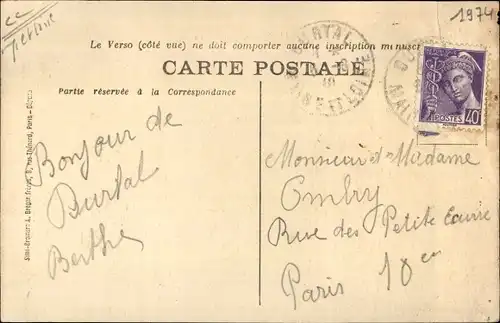 1974
Le Verso (côté vue) ne doit comporter aucune inscription manuscr
CARTE POSTALE
Partie réservée à la Correspondance
DURTAL
MAINE ET LOIRE
POSTES
40
Bonjour de
Durtal
Berthe
Monsieur et Madame
Rue des Petite Ecurie
Paris 10em